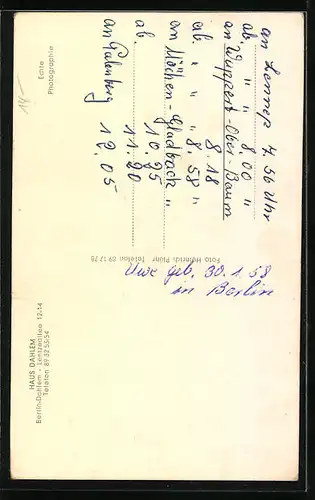 an Lennep 7.56 Uhr
ab. " " 8.00 "
an Wuppert.-Ober-Barm
8.18
ab. " " 8.58 "
an München-Gladbach "
10.25
ab. 11.20
an Palenberg 12.05
Echte
Photographie
Foto Heinrich Telefon 89 17 78
Uwe geb. 30.1.58
in Berlin
HAUS DAHLEM
Berlin-Dahlem - Lentzeallee 12-14
Telefon 89 32 53/54